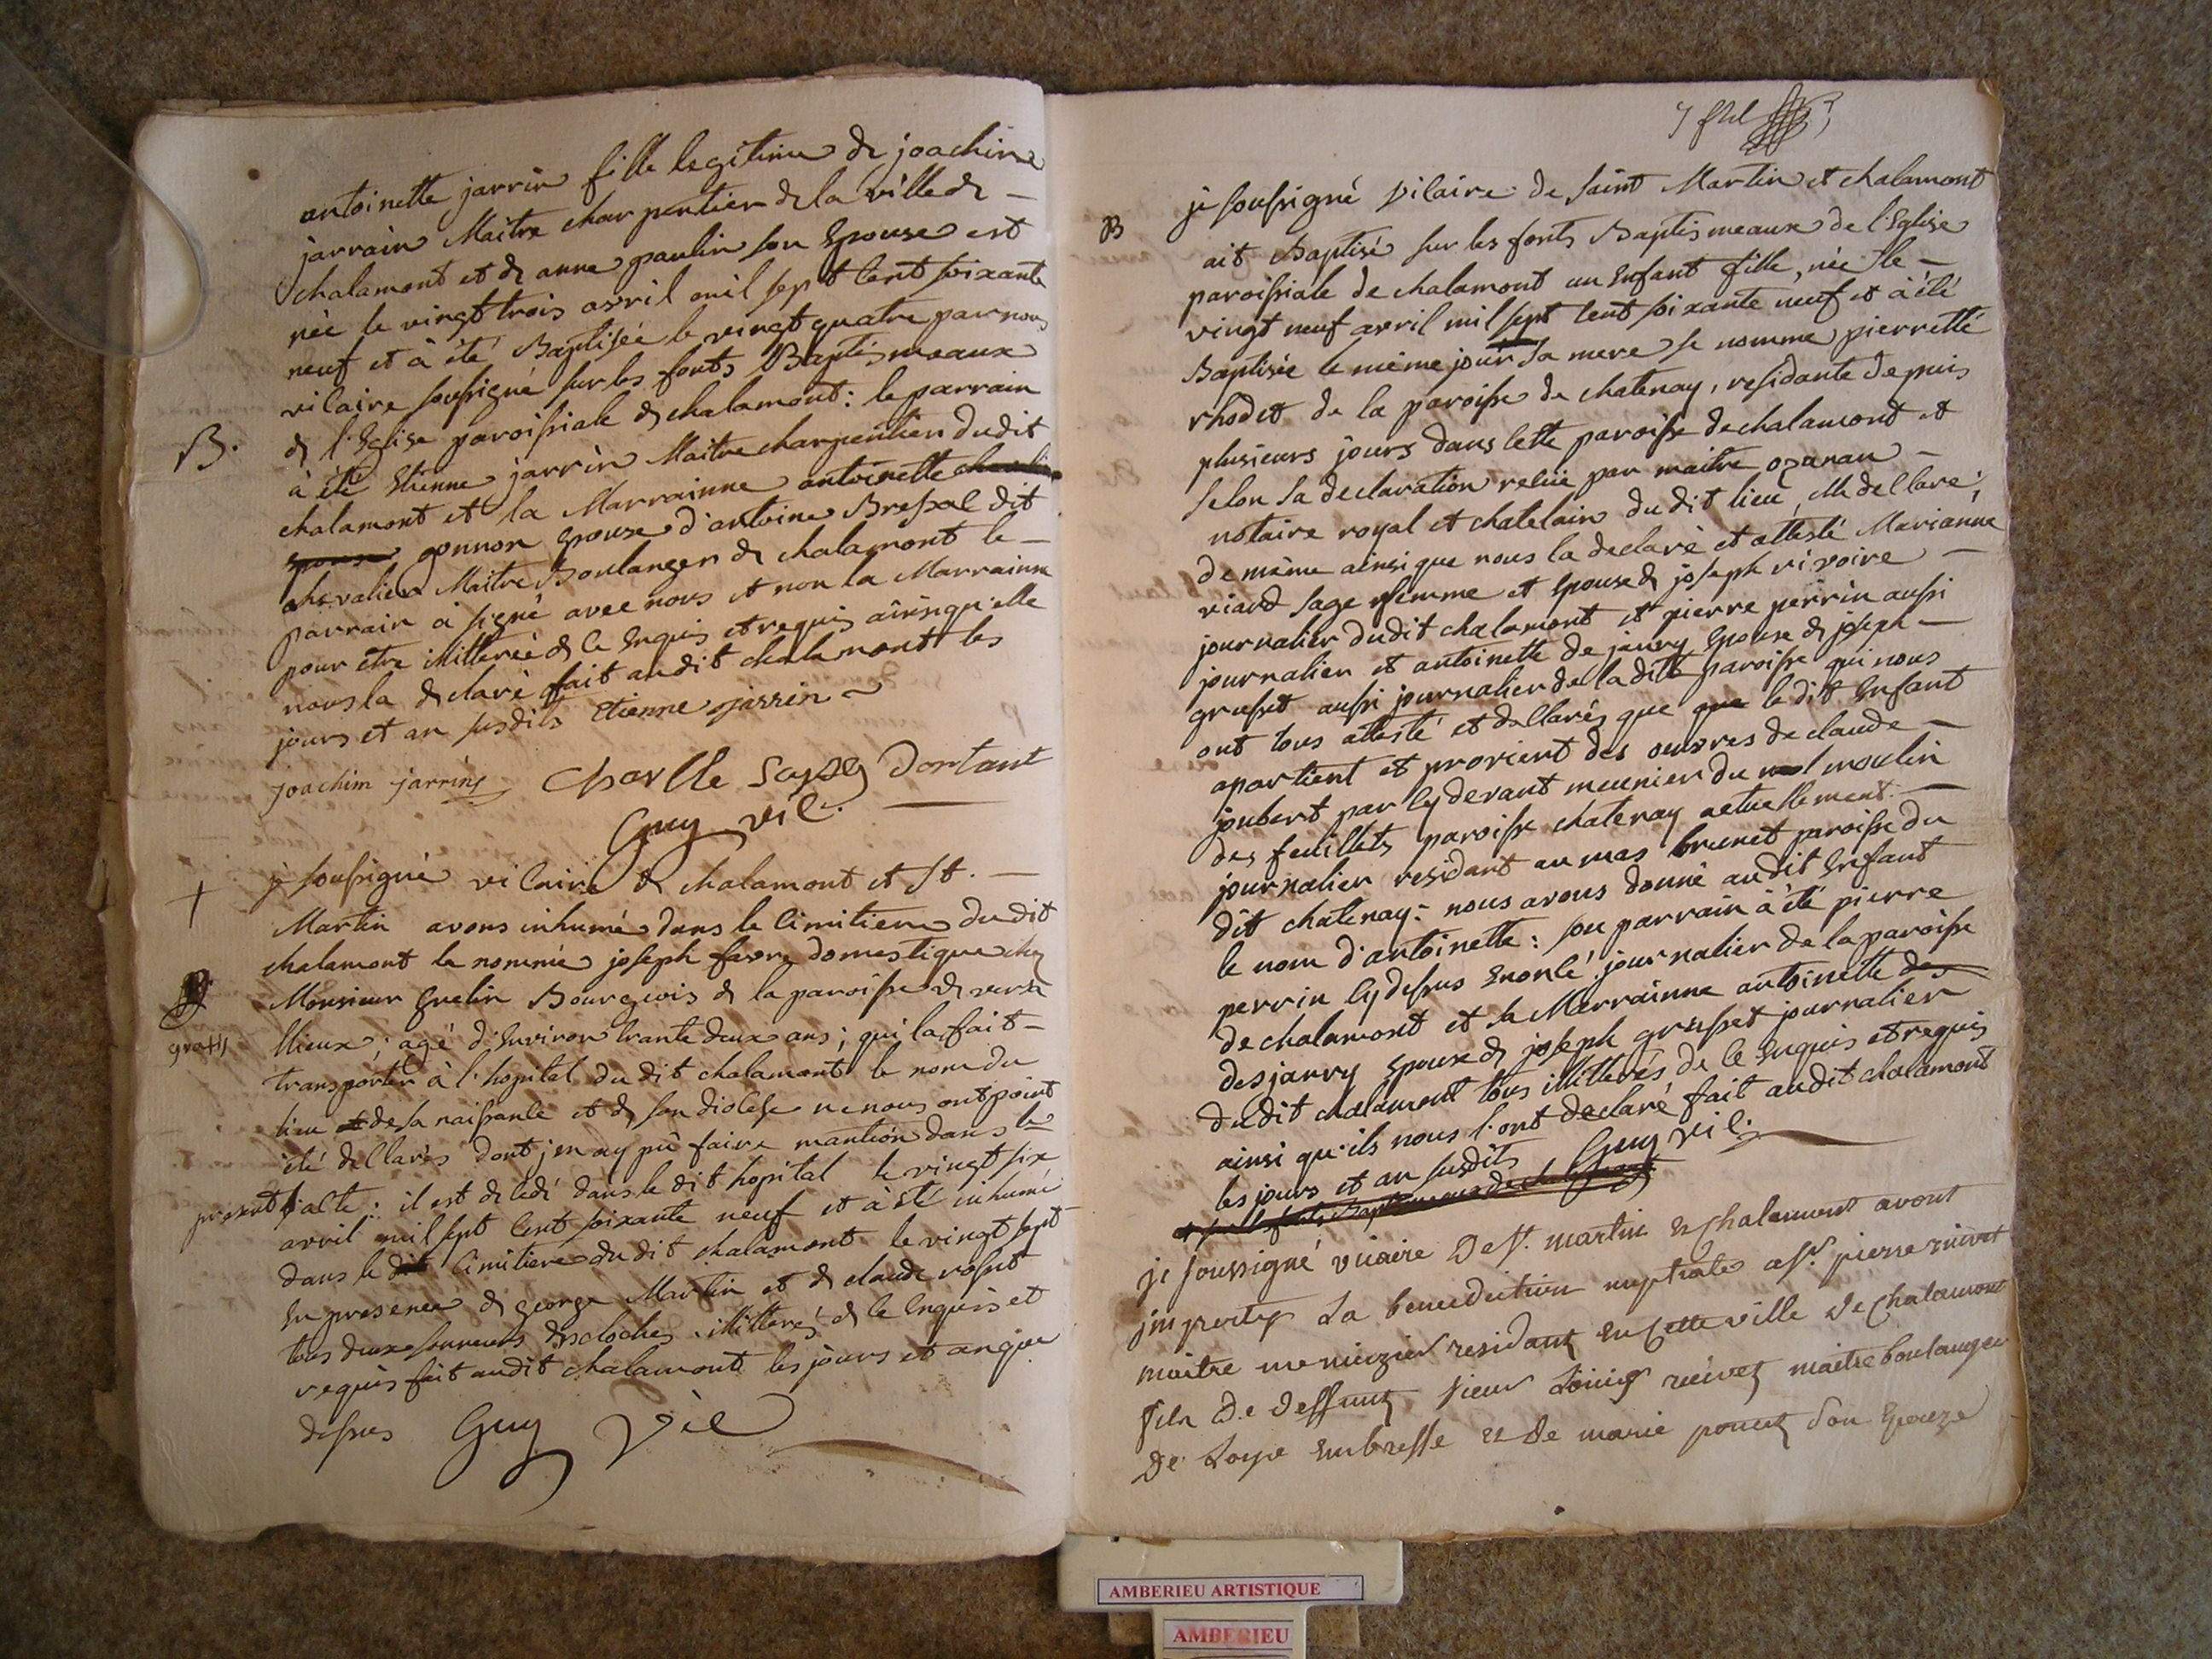 antoinette jarrin fille legitime de joachim
jarrain Maitre charpentier de la ville de -
chalamont et de anne paulin son Epouse est
née le vingt trois avril mil sept cent soixante
neuf et à été Baptisée le vingt quatre par nous
vicaire soussigné sur les fonts Baptismeaux
B. de l'Eglise paroissiale de chalamont : le parrain
à été Etienne jarrin Maitre charpentier dudit
chalamont et la Marrainne antoinette
gonnon Epouse d'antoine Bressal dit
chevalier Maitre Boulanger de chalamont le -
parrain a signé avec nous et non la Marrainne
pour etre illitterée de ce Enquis et requis ainsi qu'elle
nous la declaré fait audit chalamont les
jours et an susdits Etienne jarrin
joachim jarrin Charlle Dortant
Guy vic.
+ je soussigné vicaire de chalamont et St. -
Martin avons inhumé dans le Cimitiere du dit
chalamont le nommé joseph favre domestique chez
Monsieur Guelin Bourgeois de la paroisse de versa
gratis llieux ; agé d'Environ trante deux ans ; qui la fait -
transporter à l'hopital du dit chalamont le nom du
lieu de sa naissance et de son diocese ne nous ont point
été declarés dont jen ay pû faire mantion dans le
present acte : il est decedé dans le dit hopital le vingt six
avril mil sept cent soixante neuf et à été inhumé
dans le dit Cimitiere du dit chalamont le vingt sept
En presence de george Martin et de claude rosset
tous deux sonneurs des cloches illitterés de ce Enquis et
requis fait audit chalamont les jours et an que
dessus Guy vic
B je soussigné vicaire de saint Martin et chalamont
ait Baptisé sur les fonts Baptismeaux de l'Eglise
paroissiale de chalamont un Enfant fille, née le -
vingt neuf avril mil sept cent soixante neuf et à été
Baptisée le même jour sa mere se nomme pierrette
rhodet de la paroisse de chatenay, residante depuis
plusieurs jours dans cette paroisse de chalamont et
selon sa declaration reçüe par maitre ozanan -
notaire royal et chatelain du dit lieu, declaré,
de même ainsi que nous la declaré et attesté Marianne
viard sage femme et Epouse de joseph rivoire -
journalier dudit chalamont et pierre perrin aussi
journalier et antoinette de janvry Epouse de joseph -
grusset aussi journalier de la dite paroisse qui nous
ont tous attesté et declarés que que le dit Enfant
apartient et provient des oeuvres de claude -
joubert par cy devant meunier du moulin
des feuillets paroisse chatenay actuellement -
journalier residant au mas brunet paroisse du
dit chatenay : nous avons donné audit Enfant
le nom d'antoinette : son parrain à été pierre
perrin cy dessus Enoncé journalier de la paroisse
de chalamont et la Marrainne antoinette des
desjanvry Epouse de joseph grusset journalier
dudit chalamont tous illitterés de ce Enquis et requis
ainsi qu'ils nous l'ont declaré fait audit chalamont
les jours et an susdits Guy vic.
je soussigné vicaire de St. martin et chalamont avont
imparty La benediction nuptiale a Sr. pierre
maitre menuzier residant en cette ville de chalamont
fils de deffunt sieur Louis maitre boulanger
de Loye en bresse et de marie poncet son Epouze
AMBERIEU ARTISTIQUE
AMBERIEU